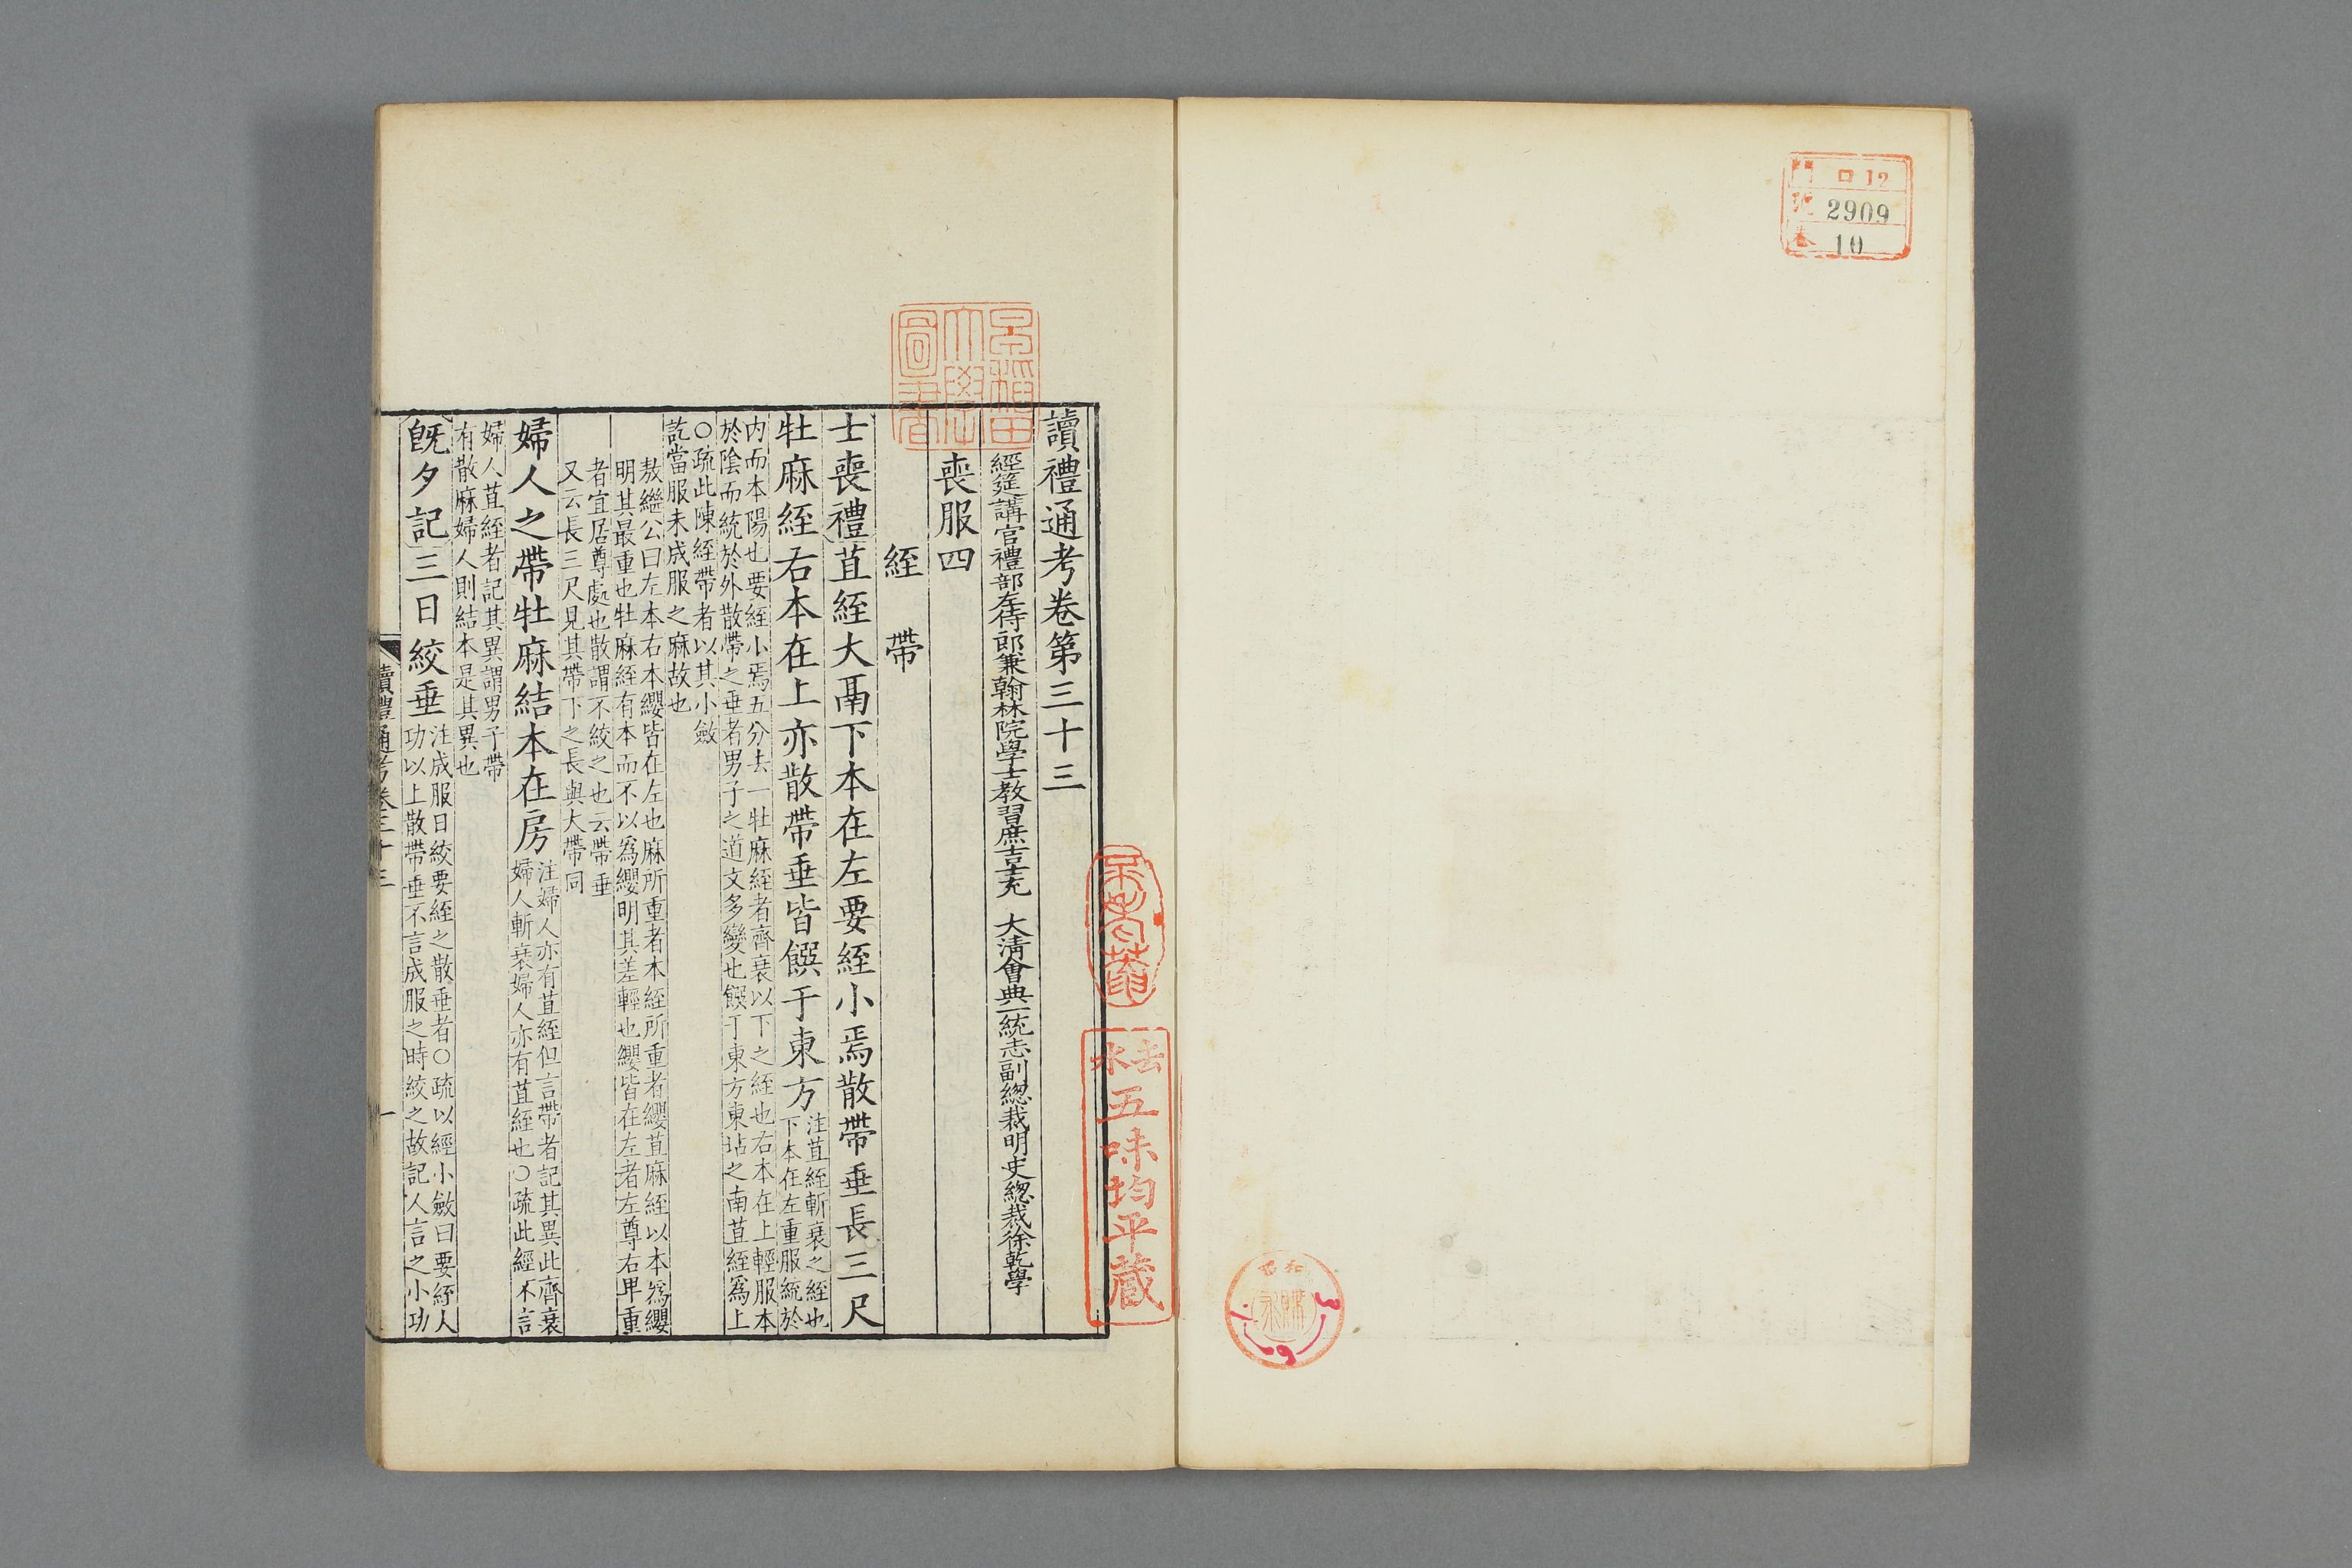 門 口12
號 2909
卷 10
早稲田
大學
圖書
去水
五味均平蔵
讀禮通考卷第三十三
經筵講官禮部左侍郎兼翰林院學士教習庶吉士充 大清會典一統志副總裁明史總裁徐乾學
喪服四
絰 帶
士喪禮苴絰大鬲下本在左要絰小焉散帶垂長三尺
牡麻絰右本在上亦散帶垂皆饌于東方注苴絰斬衰之絰也
下本在左重服統於
内而本陽也要絰小焉五分去一牡麻絰者齊衰以下之絰也右本在上輕服本
於陰而統於外散帶之垂者男子之道文多變也饌于東方東坫之南苴絰爲上
○疏此陳絰帶者以其小斂
訖當服未成服之麻故也
敖繼公曰左本右本纓皆在左也麻所重者本絰所重者纓苴麻絰以本爲纓
明其最重也牡麻絰有本而不以爲纓明其差輕也纓皆在左者左尊右卑重
者宜居尊處也散謂不絞之也云帶垂
又云長三尺見其帶下之長與大帶同
婦人之帶牡麻結本在房注婦人亦有苴絰但言帶者記其異此齊衰
婦人斬衰婦人亦有苴絰也○疏此經不言
婦人苴絰者記其異謂男子帶
有散麻婦人則結本是其異也
旣夕記三日絞垂注成服日絞要絰之散垂者○疏以經小斂曰要絰人
功以上散帶垂不言成服之時絞之故記人言之小功
讀禮通考卷三十三
一